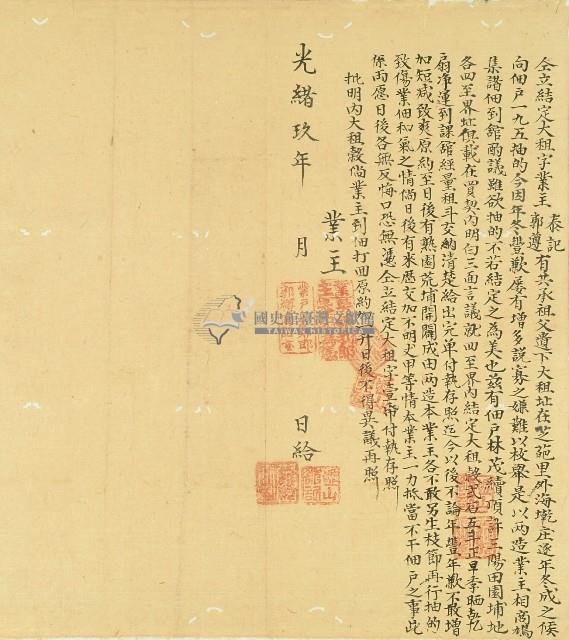 仝立結定大租字業主 泰記 郭遵 有共承祖父遺下大租址在芝葩里外海墘庄逐年冬成之候
向佃戶一九五抽的今因年冬豐歉屢有增多説寡之嫌難以枚舉是以兩造業主相商鳩
集諸佃到館酌議雖欲抽的不若結定之為美也茲有佃戶林茂續頂許三陽田園埔地
各四至界址俱載在買契內明白三面言議就四至界內結定大租穀式石五斗正早季晒乾
扇净運到課舘經量租斗交納清楚給出完单付執存照迄今以後不論年豐年歉不敢增
加短減致爽原約至日後有熟園荒埔開闢成田兩造本業主各不敢另生枝節再行抽的
致傷業佃和氣之情倘日後有來歷交加不明丈甲等情本業主一力抵當不干佃戶之事此
係兩愿日後各無反悔口恐無憑仝立結定大租字壹帋付執存照
批明內大租穀倘業主到佃打回原約 升日後不得異議再照
業主
光緒玖年 月 日給
國史館臺灣文獻館
TAIWAN HISTORICA